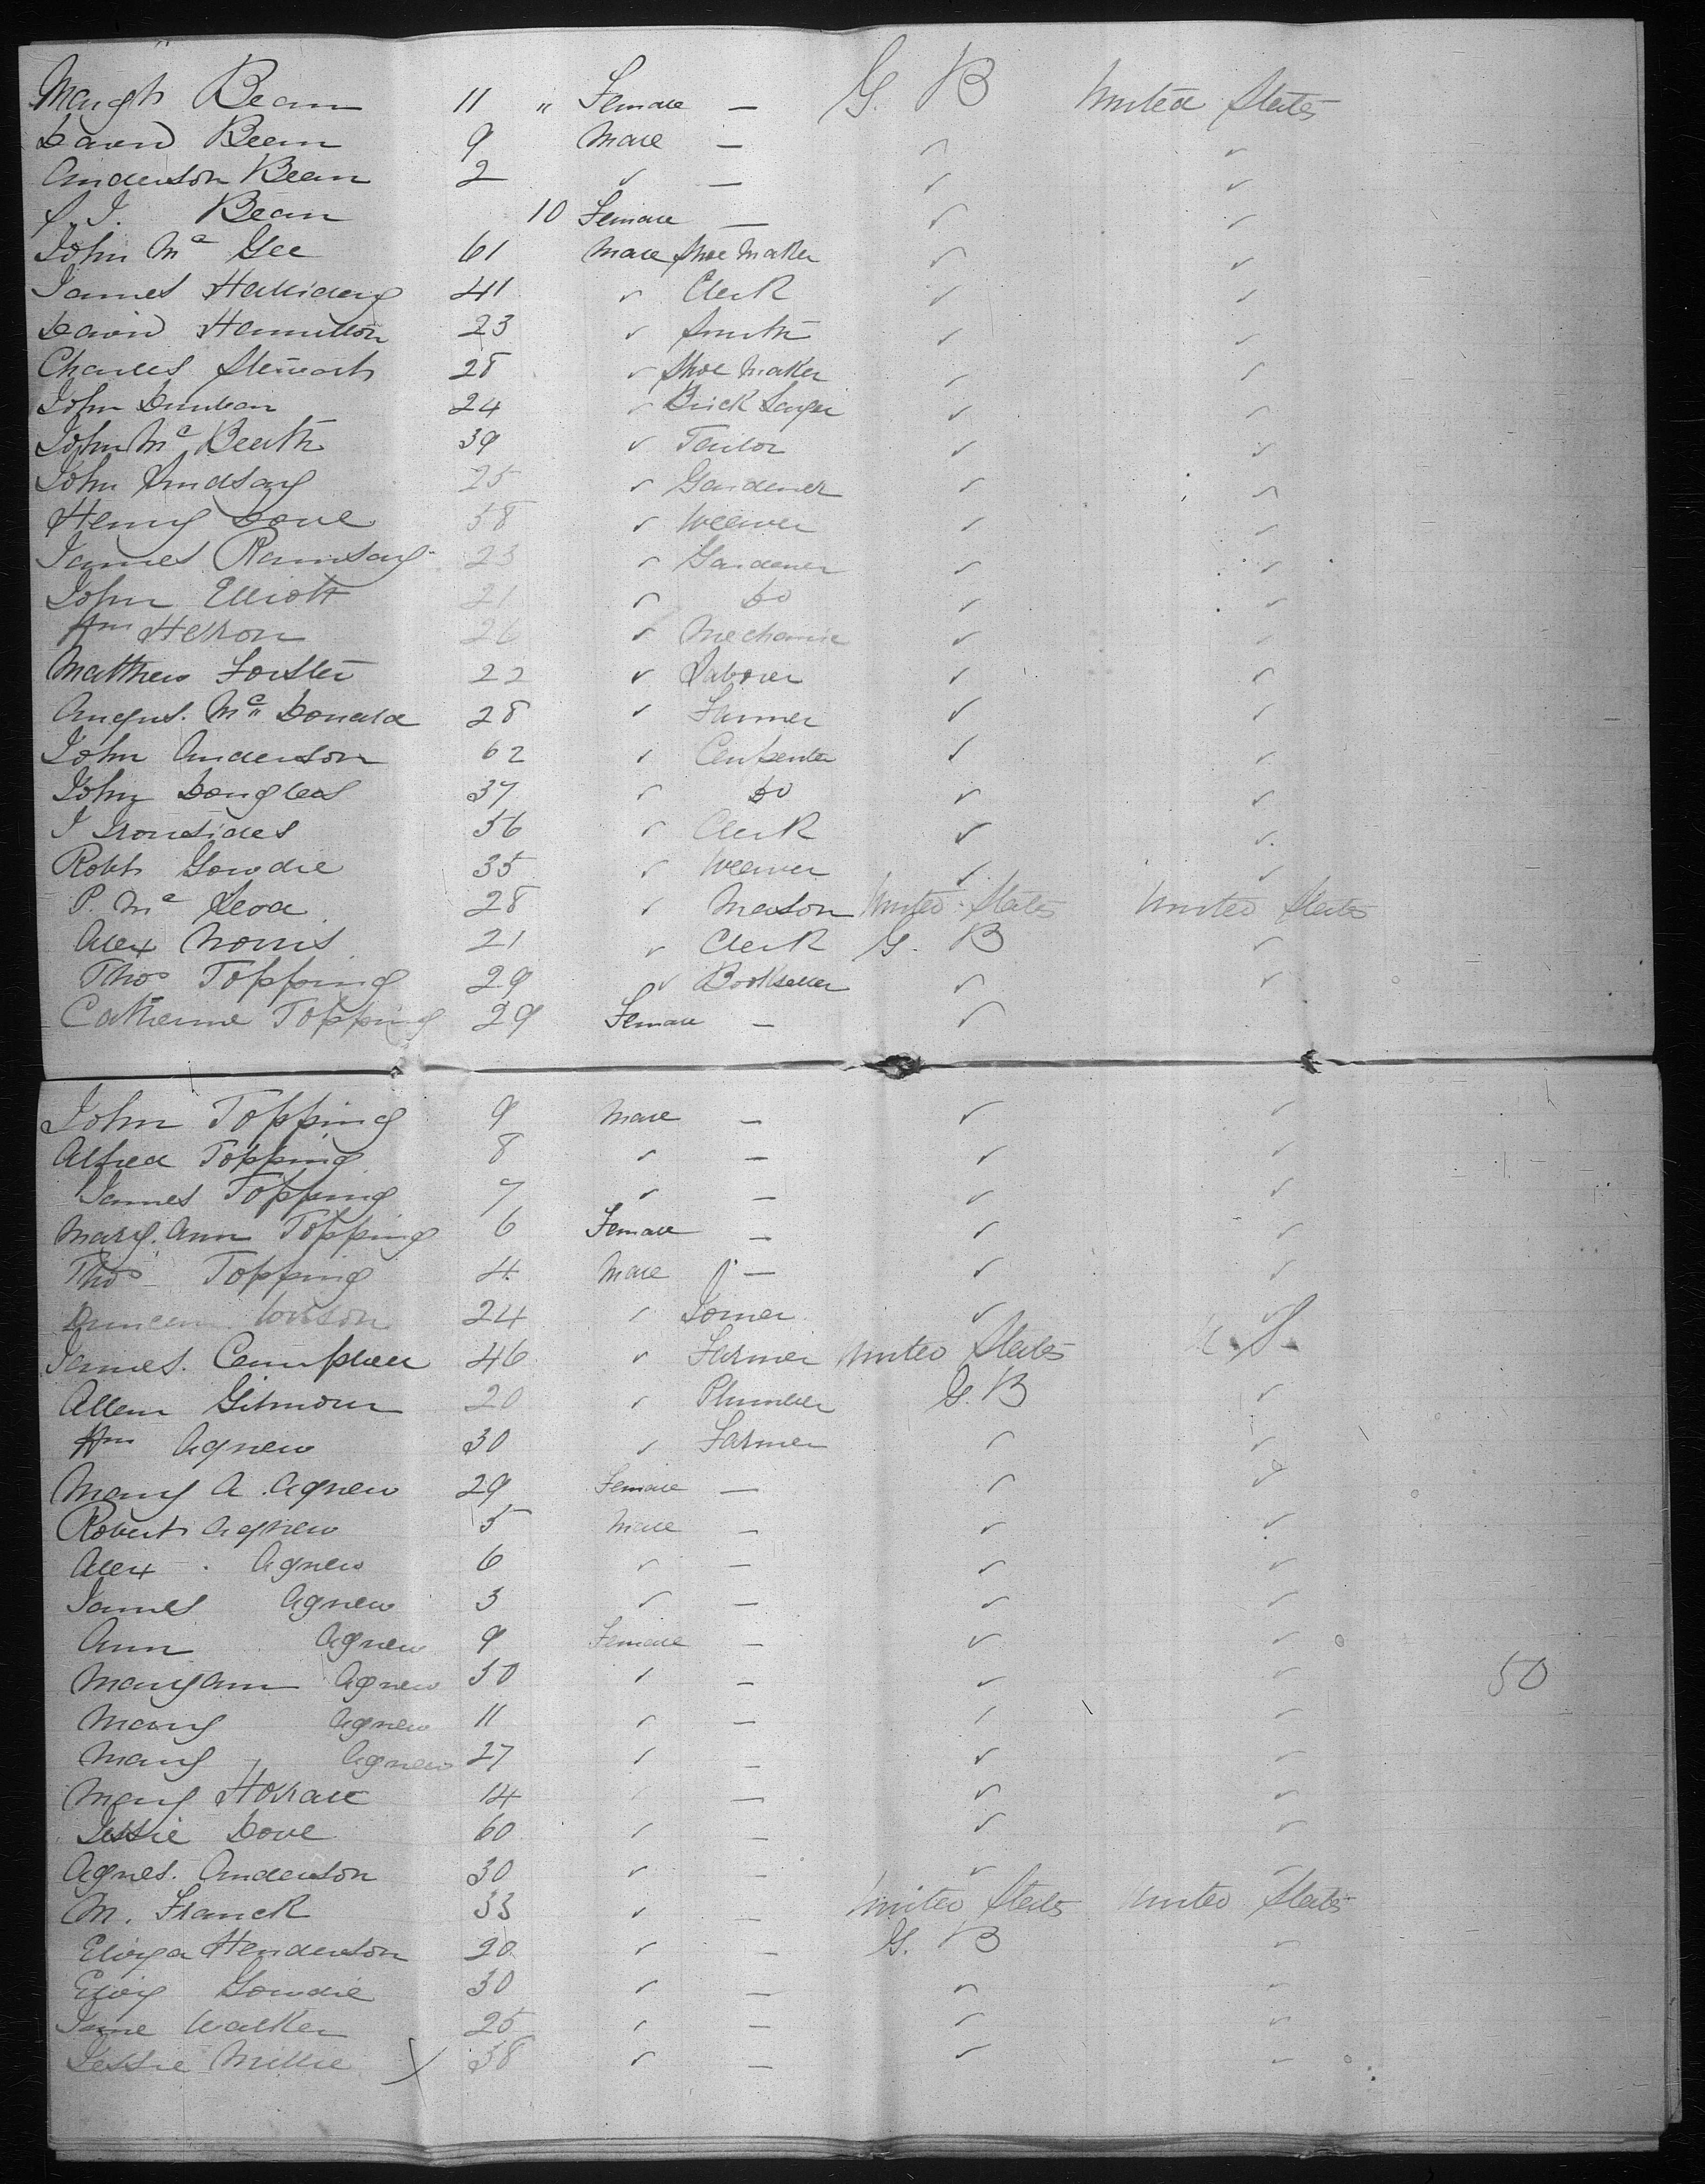 Margt Bean 11 " Female — G. B United States
David Bean 9 Male — ✓ ✓
Anderson Bean 2 ✓ — ✓ ✓
J. Bean 10 Female — ✓ ✓
John Mc Gee 61 Male Shoe Maker ✓ ✓
James Halliday 41 ✓ Clerk ✓ ✓
David Hamilton 23 ✓ Smith ✓ ✓
Charles Stewart 28 ✓ Shoe Maker ✓ ✓
John Dunbar 24 ✓ Brick Layer ✓ ✓
John Mc Beath 39 ✓ Tailor ✓ ✓
John Lindsay 25 ✓ Gardener ✓ ✓
Henry Dove 58 ✓ Weaver ✓ ✓
James Ramsay 23 ✓ Gardener ✓ ✓
John Elliott 21 ✓ Do ✓ ✓
Wm Herron 26 ✓ Mechanic ✓ ✓
Matthew Forster 22 ✓ Laborer ✓ ✓
Angus. Mc Donald 28 ✓ Farmer ✓ ✓
John Anderson 62 ✓ Carpenter ✓ ✓
John Douglas 37 ✓ Do ✓ ✓
J Ironsides 56 ✓ Clerk ✓ ✓
Robt Gowdie 35 ✓ Weaver ✓ ✓
P. Mc Leod 28 ✓ Mason United States United States
Alex Norris 21 ✓ Clerk G. B ✓
Thos Topping 29 ✓ Bookseller ✓ ✓
Catherine Topping 29 Female — ✓
John Topping 9 Male — ✓ ✓
Alfred Topping 8 ✓ — ✓ ✓
James Topping 7 ✓ — ✓ ✓
Mary. Ann Topping 6 Female — ✓ ✓
Thos Topping 4 Male — ✓ ✓
Duncan Wilson 24 ✓ Joiner ✓ ✓
James. Campbell 46 ✓ Farmer United States U. S.
Allan Gilmour 20 ✓ Plumber G. B ✓
Wm Agnew 30 ✓ Farmer ✓ ✓
Mary A. Agnew 29 Female — ✓ ✓
Robert Agnew 5 Male — ✓ ✓
Alex. Agnew 6 ✓ — ✓ ✓
James Agnew 3 ✓ — ✓ ✓
Ann Agnew 9 Female — ✓ ✓
Maryann Agnew 50 ✓ — ✓ ✓ 50
Mary Agnew 11 ✓ — ✓ ✓
Mary Agnew 27 ✓ — ✓ ✓
Mary 14 ✓ — ✓ ✓
Jessie Dove 60 ✓ — ✓ ✓
Agnes. Anderson 30 ✓ — ✓ ✓
M. Franck 33 ✓ — United States United States
Eliza Henderson 20 ✓ — G. B ✓
Gowdie 30 ✓ — ✓ ✓
Jane Walker 25 ✓ — ✓ ✓
Jessie Millie X 38 ✓ — ✓ ✓